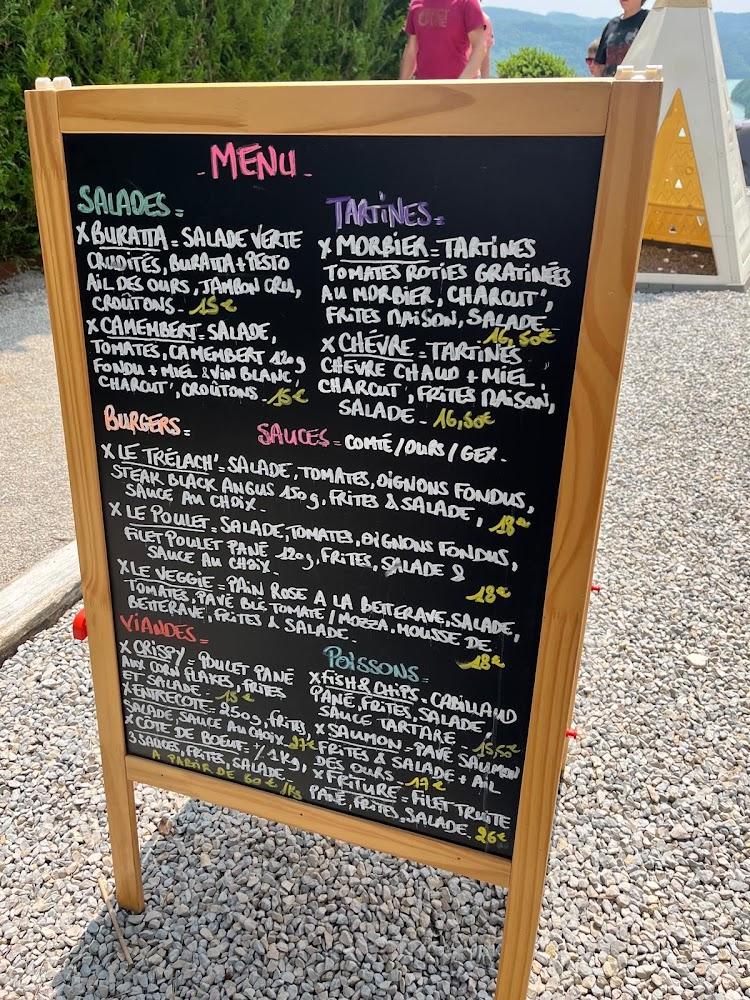 - MENU -
SALADES =
X BURATTA = SALADE VERTE
CRUDITÉS, BURATTA + PESTO
AIL DES OURS, JAMBON CRU,
CROÛTONS - 15€
X CAMEMBERT = SALADE,
TOMATES, CAMEMBERT 120g
FONDU + MIEL & VIN BLANC,
CHARCUT', CROÛTONS - 15€
TARTINES =
X MORBIER = TARTINES
TOMATES ROTIES GRATINÉES
AU MORBIER, CHARCUT',
FRITES MAISON, SALADE -
16,50€
X CHÉVRE = TARTINES
CHEVRE CHAUD + MIEL,
CHARCUT', FRITES MAISON,
SALADE - 16,50€
BURGERS =
SAUCES = COMTÉ / OURS / GEX -
X LE TRÉLACH' = SALADE, TOMATES, OIGNONS FONDUS,
STEAK BLACK ANGUS 150g, FRITES & SALADE,
SAUCE AU CHOIX - 18€
X LE POULET = SALADE, TOMATES, OIGNONS FONDUS,
FILET POULET PANÉ 120g, FRITES, SALADE &
SAUCE AU CHOIX - 18€
X LE VEGGIE = PAIN ROSE A LA BETTERAVE, SALADE,
TOMATES, PAVÉ BLÉ TOMATE / MOZZA, MOUSSE DE
BETTERAVE, FRITES & SALADE - 18€
VIANDES =
X CRISPY = POULET PANÉ
AUX CORN FLAKES, FRITES
ET SALADE - 15€
X ENTRECOTE = 250g, FRITES,
SALADE, SAUCE AU CHOIX - 27€
X CÔTE DE BOEUF = 1/2 1Kg,
3 SAUCES, FRITES, SALADE -
A PARTIR DE 60€/Kg
POISSONS =
X FISH & CHIPS - CABILLAUD
PANÉ, FRITES, SALADE,
SAUCE TARTARE - 15,50€
X SAUMON = PAVÉ SAUMON
FRITES & SALADE + AIL
DES OURS - 17€
X FRITURE = FILET TRUITE
PANÉ, FRITES, SALADE - 26€